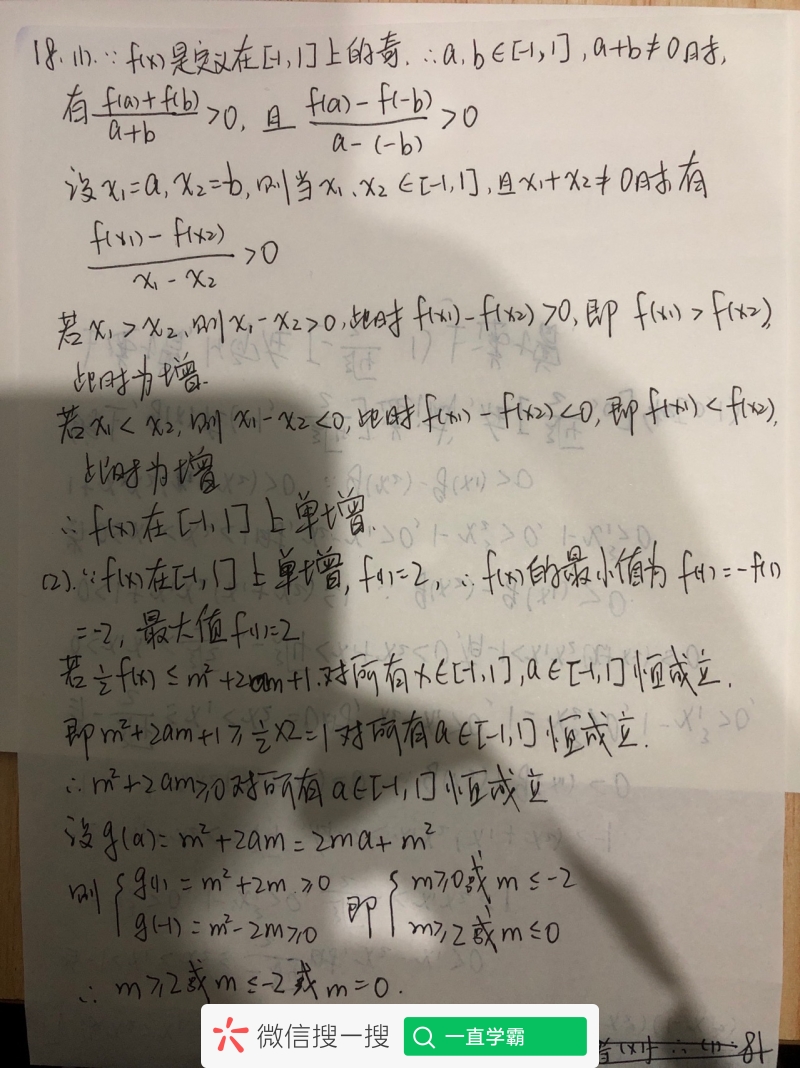 18.(1).∵f(x)是定义在[-1,1]上的奇.∴a,b∈[-1,1],a+b≠0时,
有 f(a)+f(b)/a+b >0, 且 f(a)-f(-b)/a-(-b) >0
设x₁=a,x₂=b,则当x₁、x₂∈[-1,1],且x₁+x₂≠0时,有
f(x₁)-f(x₂)/x₁-x₂ >0
若x₁>x₂,则x₁-x₂>0,此时f(x₁)-f(x₂)>0,即f(x₁)>f(x₂),
此时为增.
若x₁<x₂,则x₁-x₂<0,此时f(x₁)-f(x₂)<0,即f(x₁)<f(x₂),
此时为增
∴f(x)在[-1,1]上单增.
(2).∵f(x)在[-1,1]上单增,f(1)=2,∴f(x)的最小值为f(-1)=-f(1)
=-2,最大值f(1)=2
若½f(x)≤m²+2am+1.对所有x∈[-1,1],a∈[-1,1]恒成立.
即m²+2am+1≥½×2=1对所有a∈[-1,1]恒成立.
∴m²+2am≥0对所有a∈[-1,1]恒成立
设g(a)=m²+2am=2ma+m²
则{g(1)=m²+2m≥0 即{m≥0或m≤-2
g(-1)=m²-2m≥0 m≥2或m≤0
∴m≥2或m≤-2或m=0.
微信搜一搜 一直学霸